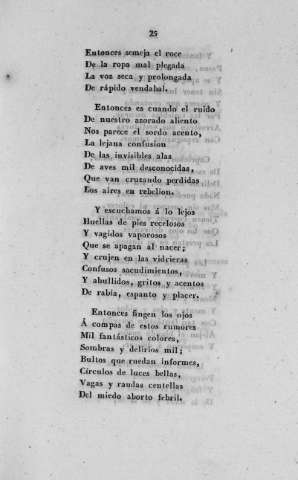 25
Entonces semeja el roce
De la ropa mal plegada
La voz seca y prolongada
De rápido vendabal.
Entonces es cuando el ruido
De nuestro azorado aliento
Nos parece el sordo acento,
La lejana confusion
De las invisibles alas
De aves mil desconocidas,
Que van cruzando perdidas
Los aires en rebelion.
Y escuchamos á lo lejos
Huellas de pies recelosos
Y vagidos vaporosos
Que se apagan al nacer;
Y crujen en las vidrieras
Confusos sacudimientos,
Y abullidos, gritos y acentos
De rabia, espanto y placer.
Entonces fingen los ojos
Á compas de estos rumores
Mil fantásticos colores,
Sombras y delirios mil;
Bultos que ruedan informes,
Círculos de luces bellas,
Vagas y raudas centellas
Del miedo aborto febril.